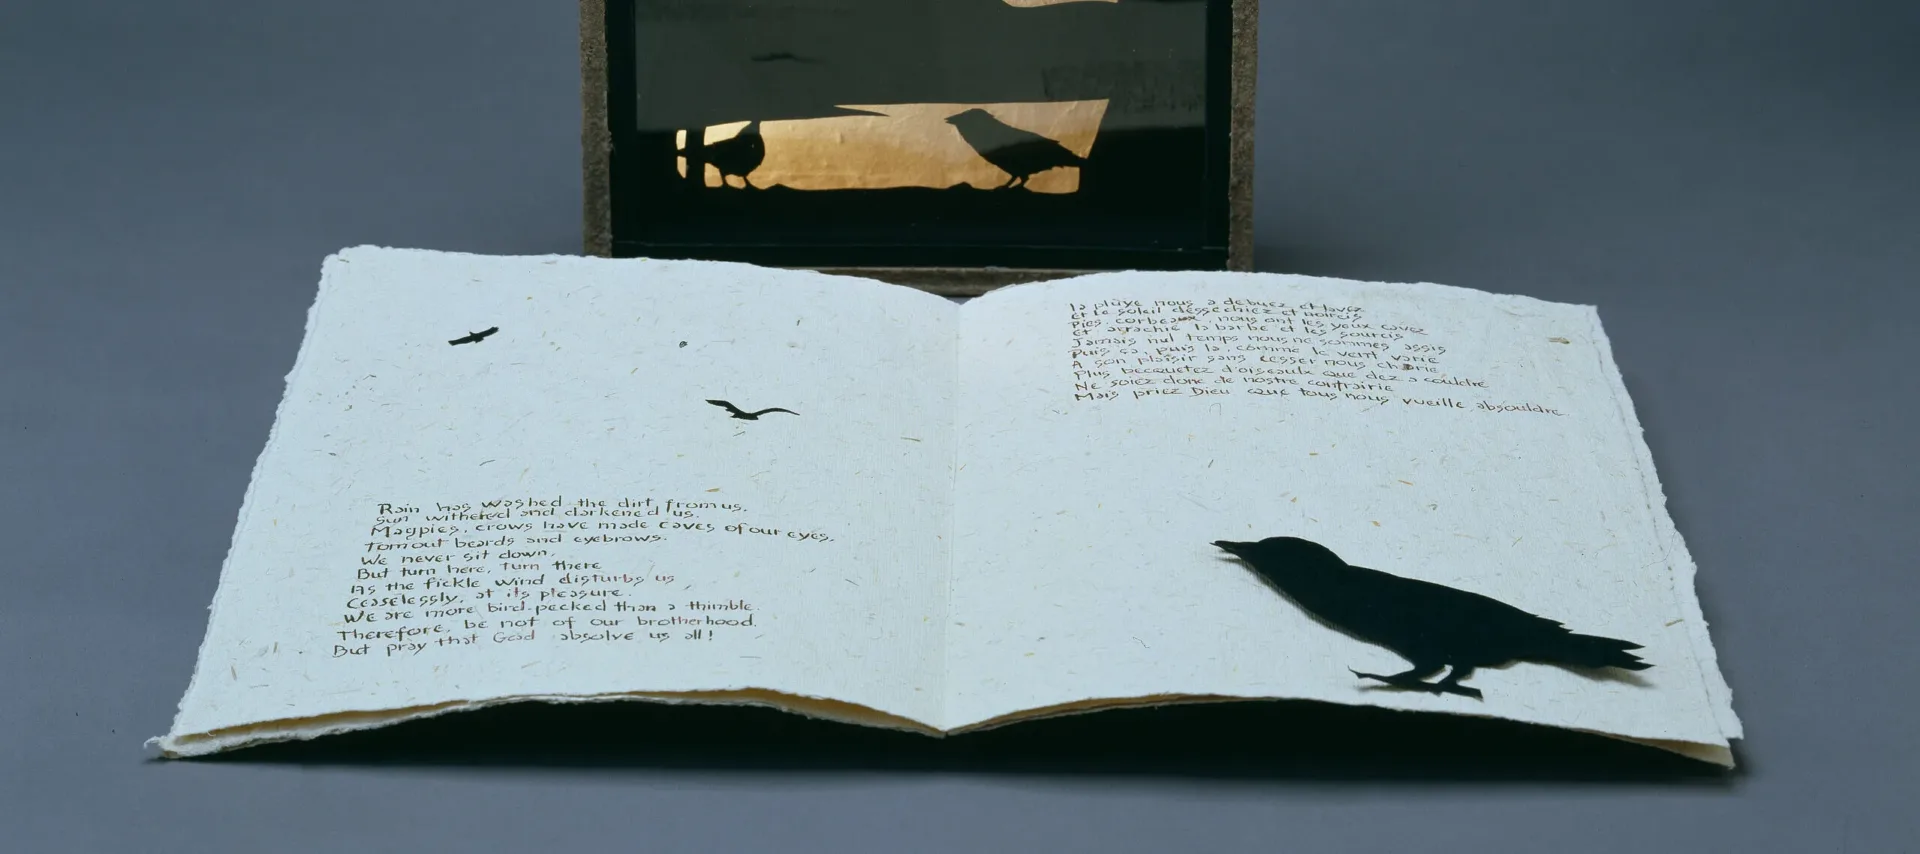 Rain has washed the dirt from us,
Sun withered and darkened us.
Magpies, crows have made caves of our eyes,
Torn out beards and eyebrows.
We never sit down,
But turn here, turn there
As the fickle wind disturbs us
Ceaselessly, at its pleasure.
We are more bird-pecked than a thimble.
Therefore, be not of our brotherhood,
But pray that God absolve us all!
la pluye nous a debuez et lavez
et le soleil dessechiez et noircis
Pies, corbeaux, nous ont les yeux cavez
Et arrachié la barbe et les sourcis
Jamais nul temps nous ne sommes assis
Puis ça, puis la, comme le vent varie
A son plaisir sans cesser nous charie
Plus becquetez d'oiseaulx que dez a couldre
Ne soiez donc de nostre confrairie
Mais priez Dieu que tous nous vueille absouldre